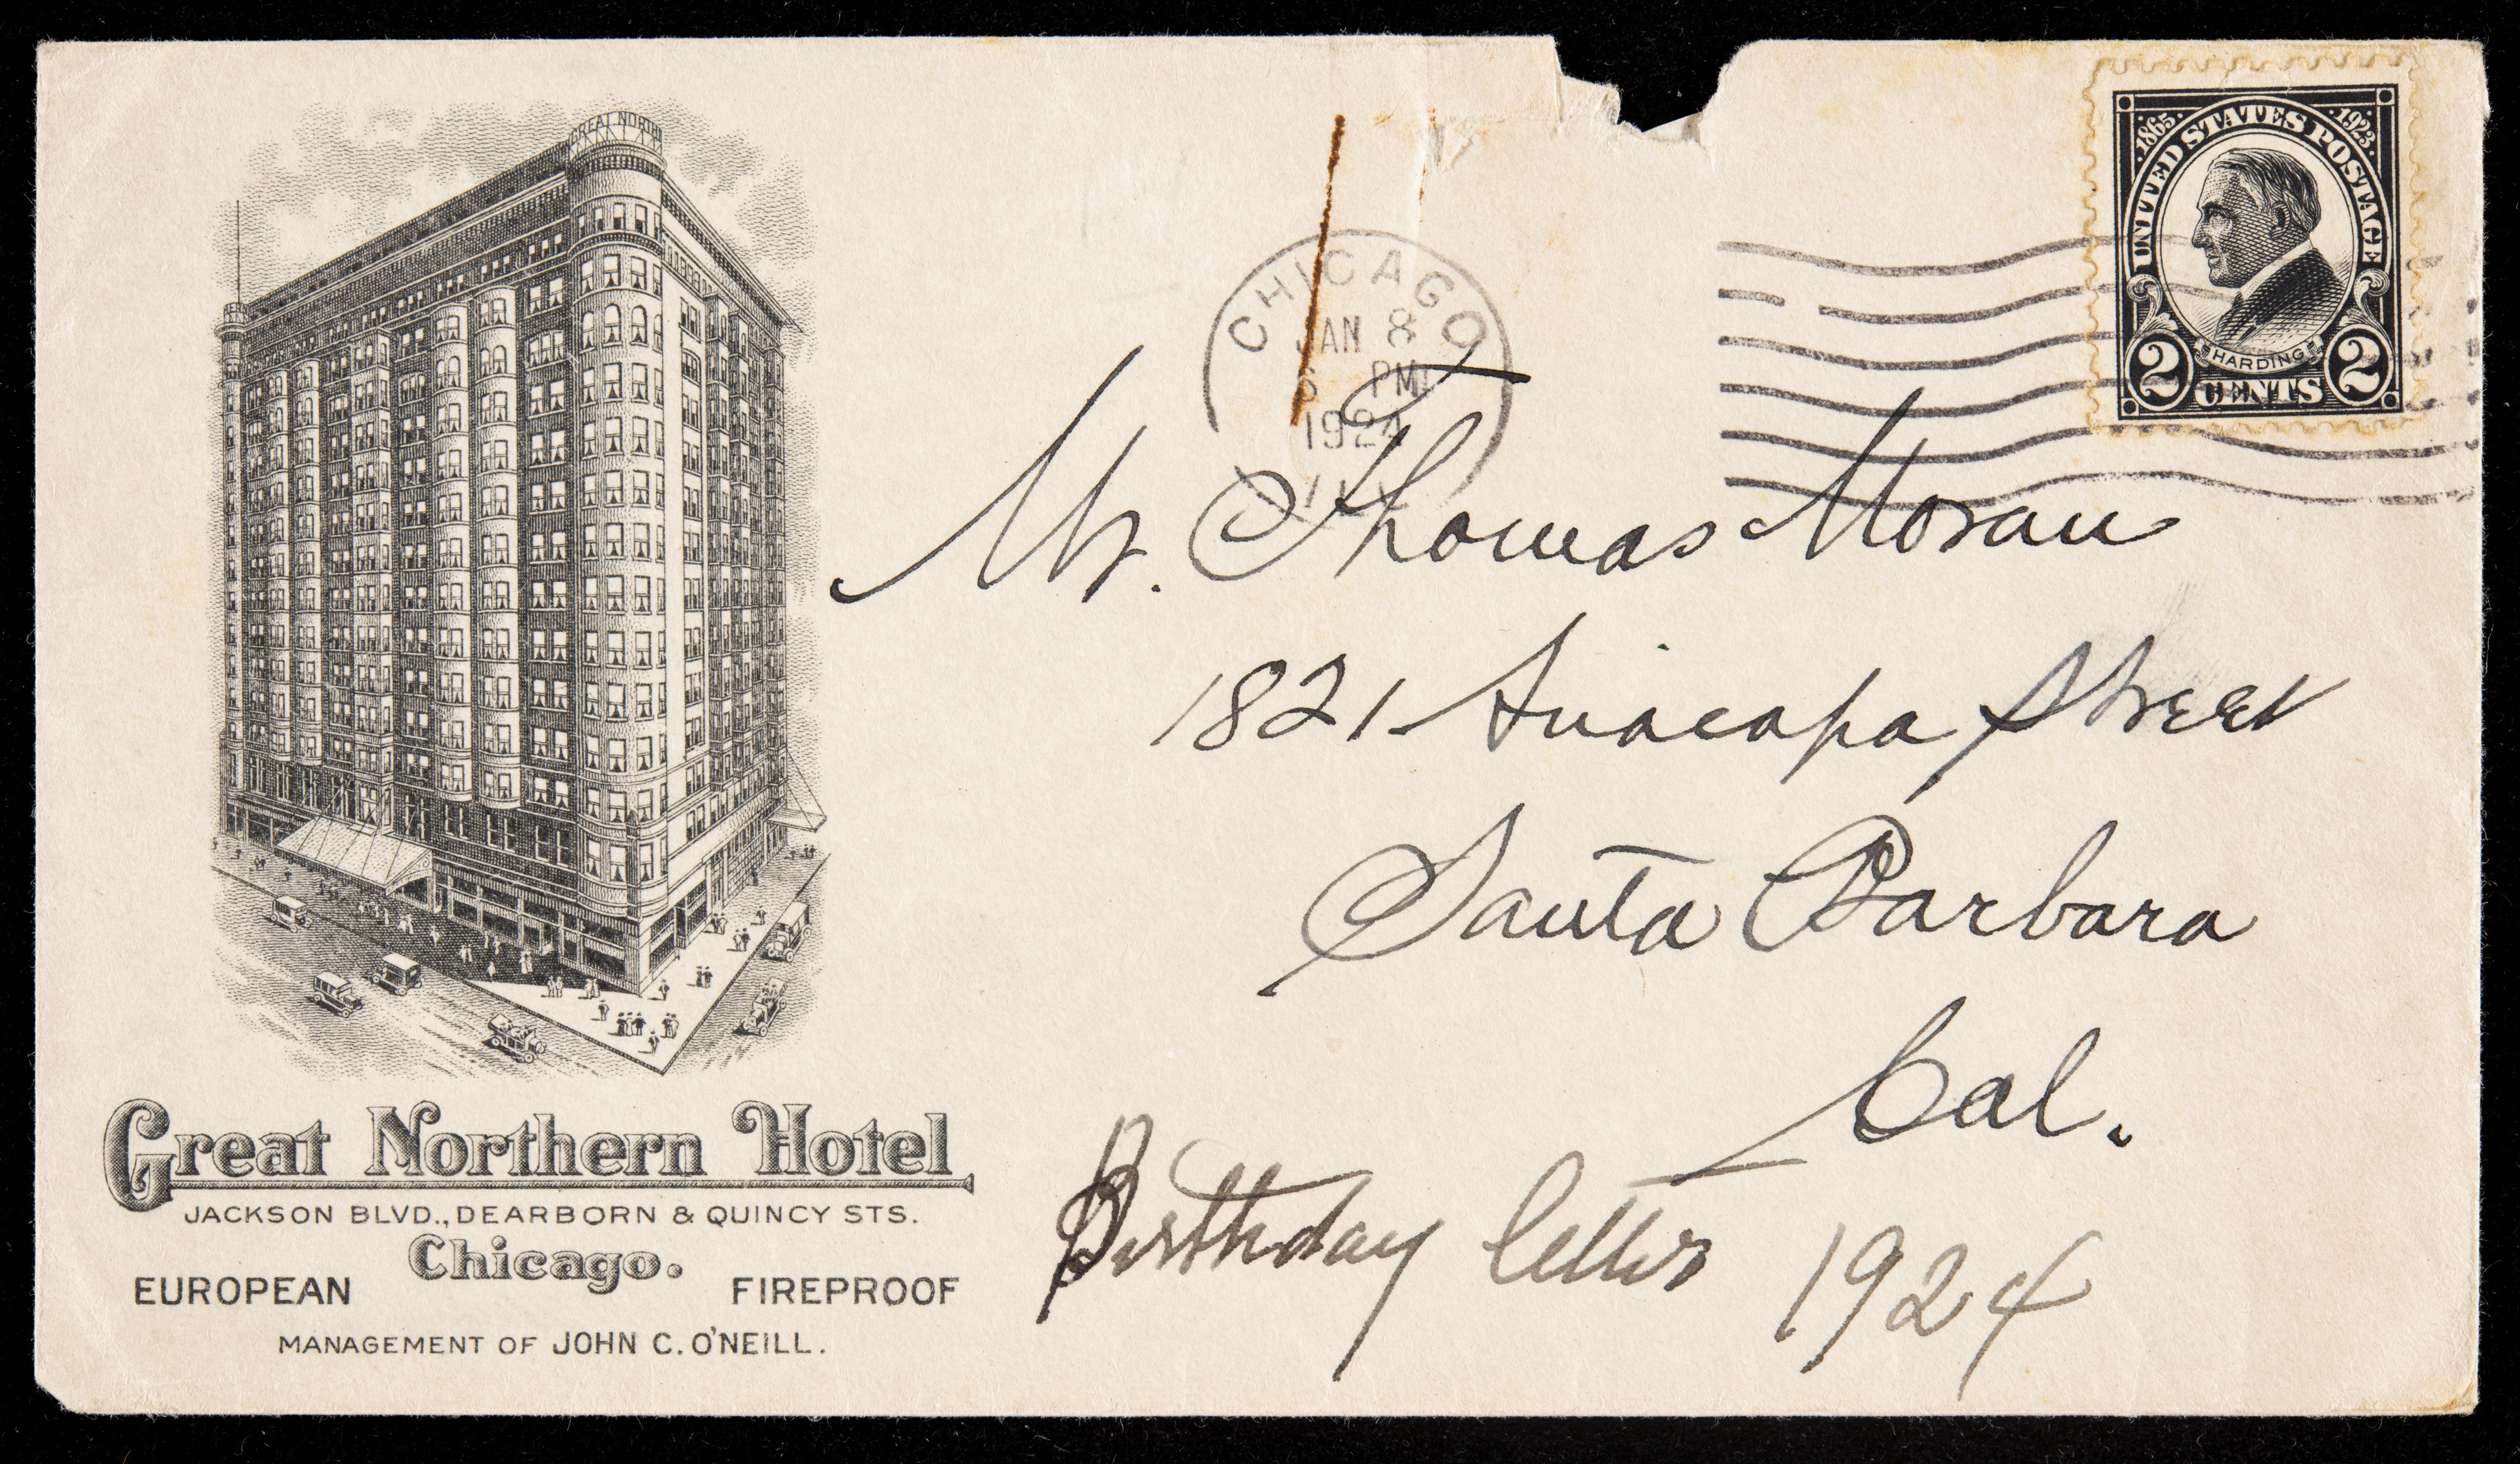 GREAT NORTH
Great Northern Hotel
JACKSON BLVD., DEARBORN & QUINCY STS.
Chicago.
EUROPEAN FIREPROOF
MANAGEMENT OF JOHN C. O'NEILL.
CHICAGO
JAN 8
6 PM
1924
ILL
1865 1923
UNITED STATES POSTAGE
HARDING
2 CENTS 2
Mr. Thomas Moran
1821 Anacapa Street
Santa Barbara
Cal.
Birthday letter 1924